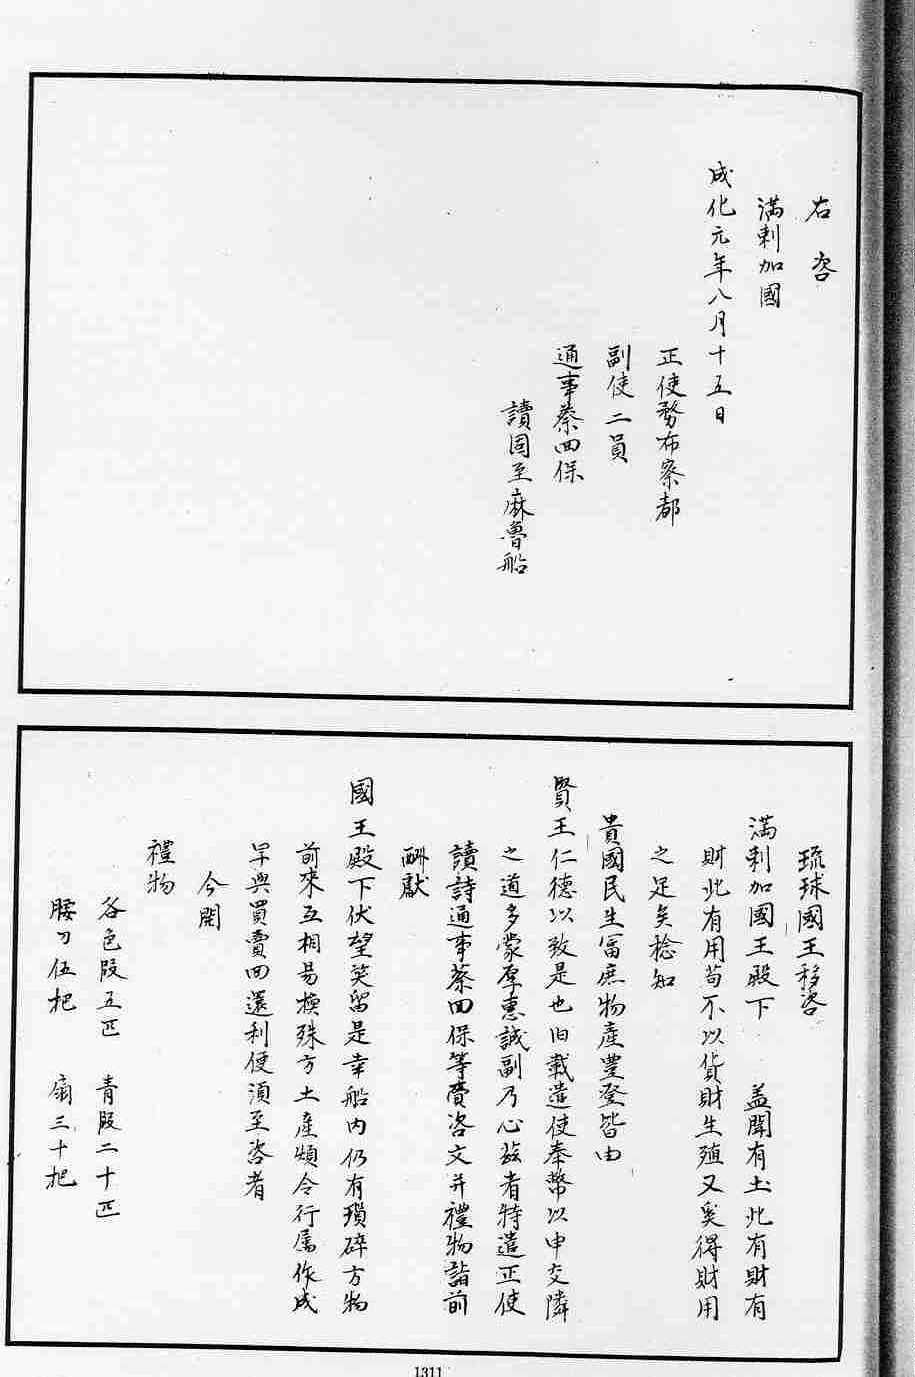 右咨
滿剌加國
成化元年八月十五日
正使務布察都
副使二員
通事蔡回保
讀固至麻魯船
琉球國王移咨
滿剌加國王殿下 盖聞有土此有財有
財此有用苟不以貨財生殖又奚得財用
之足矣稔知
貴國民生富庶物產豐登皆由
賢王仁德以致是也旧載遣使奉幣以申交隣
之道多蒙厚惠誠副乃心茲者特遣正使
讀詩通事蔡回保等賫咨文并禮物詣前
酬獻
國王殿下伏望笑留是幸船內仍有瑣碎方物
前來互相易換殊方土產煩令行属作成
早與買賣回還利便須至咨者
今開
禮物
各色段五匹 青段二十匹
腰刀伍把 扇三十把
1311